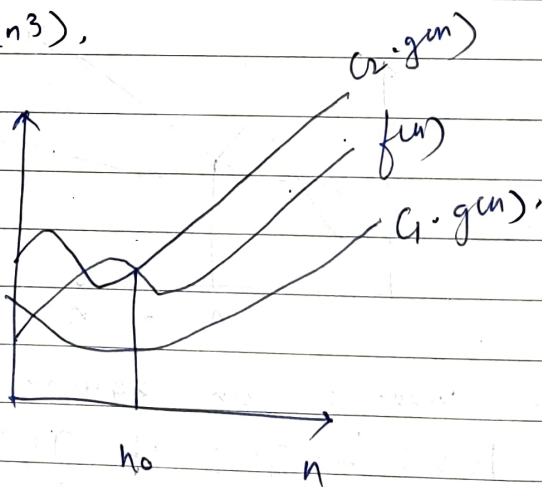 n³),
C₂·g(n)
f(n)
C₁·g(n).
n₀
n